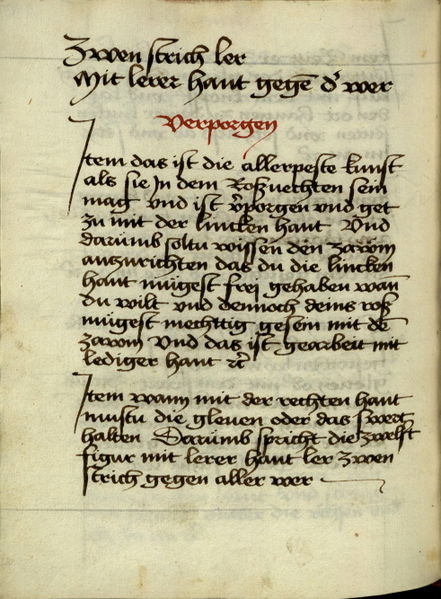 Zwen strich ler
Mit lerer hant gegē d' wer
Verporgen
Item das ist die allerpeste kunst
als sie In dem Roßuechten sein
mag vnd ist v̄porgen vnd get
zu mit der lincken hant Vnd
darumb soltu wissen den zawm
anzurichten das du die lincken
hant mügest frei gehaben wan̄
du wilt vnd dennoch deins roß
mügest mechttig gesein mit dē
zawm Vnd das ist gearbeit mit
lediger hant ꝛc̄
Item wann mit der rechten hant
mustu die gleuen oder das swert
halten Darumb spricht die zwelft
figur mit lerer hant ler zwen
strich gegen aller wer